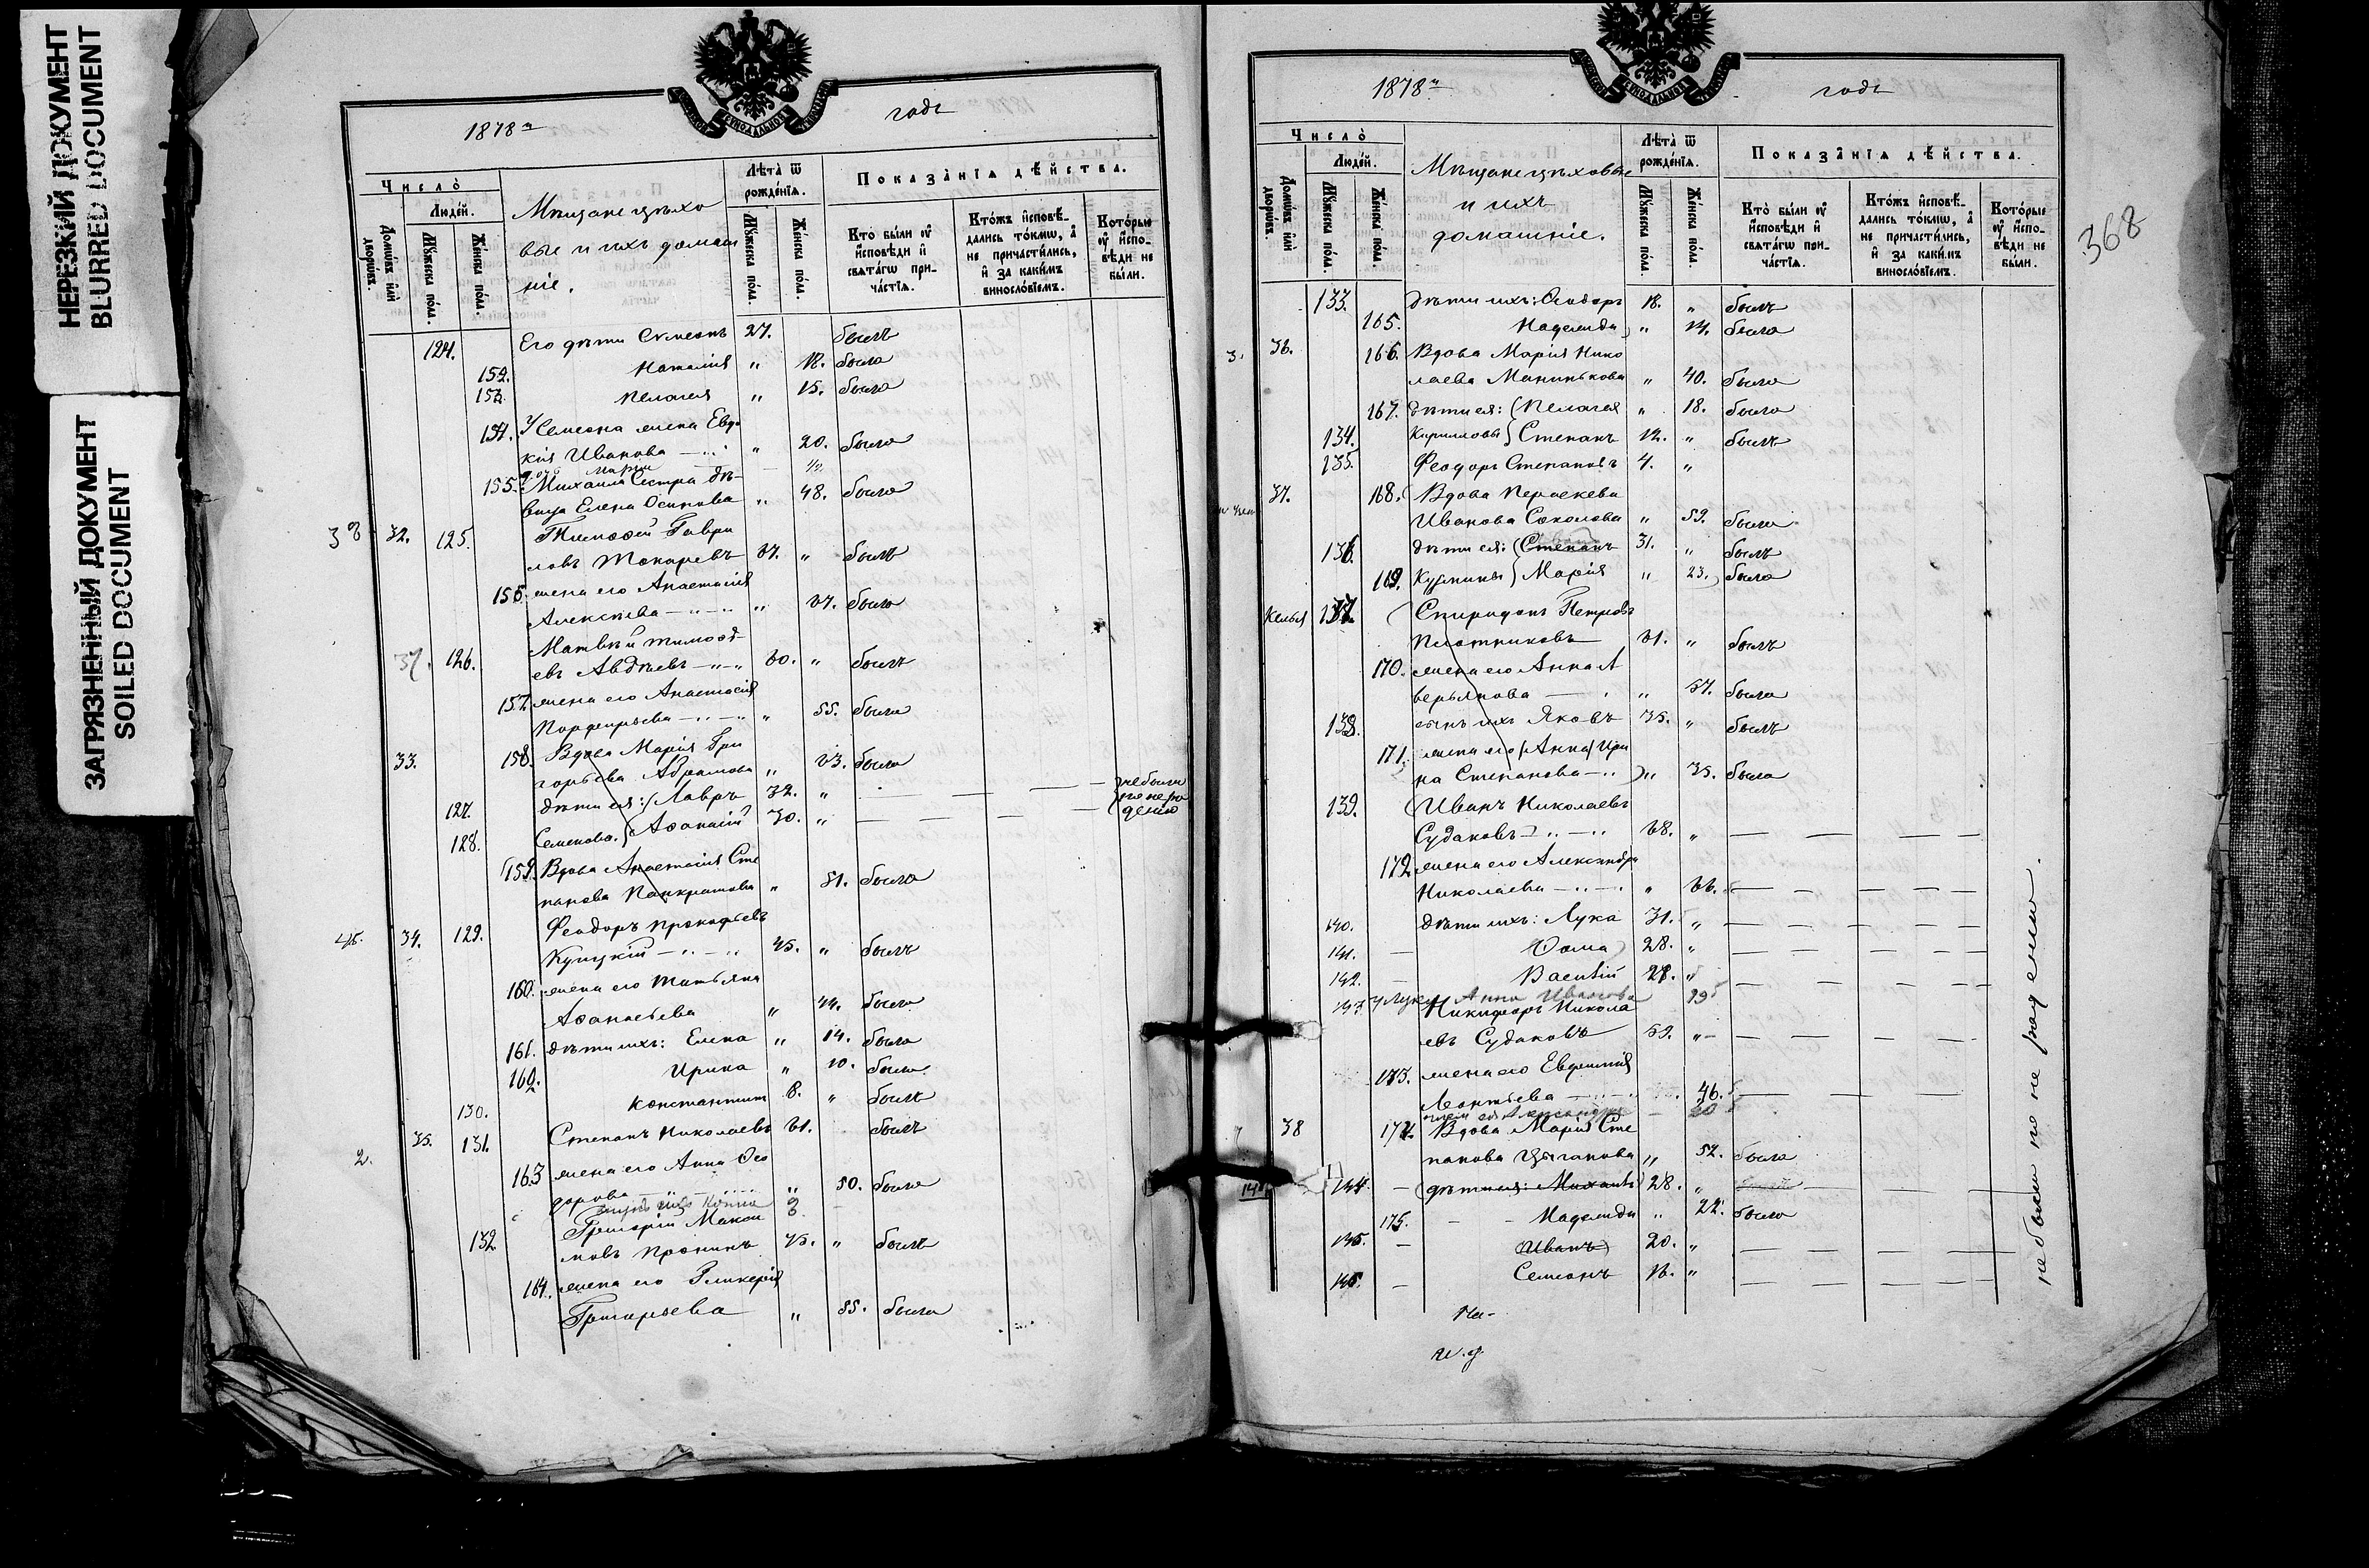 НЕРЕЗКИЙ ДОКУМЕНТ
BLURRED DOCUMENT
ЗАГРЯЗНЕННЫЙ ДОКУМЕНТ
SOILED DOCUMENT
1878 годъ
Число̀
Людѐй.
Домѡвъ и҆лѝ дворѡвъ.
Мꙋжеска пола.
Женска пола.
Мѣщане цѣхо
вые и ихъ домаш
ніе.
Лѣта̀ ѿ рожде́нїѧ.
Мꙋжеска пола.
Женска пола.
Показа̑нїѧ дѣ́йства.
Кто̀ бы́ли ᲂу҆ и҆сповѣди и҆ свѧта́гѡ прича́стїѧ.
Кто́жъ и҆сповѣ́дались то́кмѡ, а҆ не причасти́лись, и҆ за каки́мъ винослóвїемъ.
Кото́рые ᲂу҆ и҆сповѣди не бы́ли.
124. Его дѣти Симеонъ 27. былъ
152. Наталія " 18. была
153. Пелагея " 15. была
154. У Семеона жена Евдо
кія Иванова " 20. была
дочь Марія
155. Михаила Сестра дѣ-
вица Елена Осипова " 48. была
32. 125. Тимоѳей Гаври
ловъ Токаревъ 67. " былъ
156. жена его Анастасія
Алексѣева " 67. была
37. 126. Матвѣй Тимоѳѣ-
евъ Авдѣевъ 60. " былъ
157. жена его Анастасія
Порфирьева " 55. была
33. 158. Вдова Марія Гри
горьева Абрамова " 63. была
127. дѣти ея: Лавръ 32. "
128. Семенова. Аѳанасій 30. "
не были
по нера
дѣнію
159. Вдова Анастасія Сте
панова Панкратова " 51. была
45. 34. 129. Ѳеодоръ Прокофьевъ
Купцкій 45. " былъ
160. жена его Татьяна
Аѳанасьева " 44. была
161. дѣти ихъ: Елена " 14. была
162. Ирина " 10. была
130. Константинъ 8. " былъ
2. 35. 131. Степанъ Николаевъ 61. былъ
163 жена его Анна Ѳео
дорова " 50. была
132 Григорій Макси
мовъ Пронинъ 45. " былъ
164. жена его Гликерія
Григорьева " 55. была
1878 годъ
368
Число̀
Людѐй.
Домѡвъ и҆лѝ дворѡвъ.
Мꙋжеска пола.
Женска пола.
Мѣщане цѣховые
и ихъ
домашніе.
Лѣта̀ ѿ рожде́нїѧ.
Мꙋжеска пола.
Женска пола.
Показа̑нїѧ дѣ́йства.
Кто̀ бы́ли ᲂу҆ и҆сповѣди и҆ свѧта́гѡ прича́стїѧ.
Кто́жъ и҆сповѣ́дались то́кмѡ, а҆ не причасти́лись, и҆ за каки́мъ винослóвїемъ.
Кото́рые ᲂу҆ и҆сповѣди не бы́ли.
133. дѣти ихъ: Ѳеодоръ 18. " былъ
165. Надежда " 14. была
3. 36. 166. Вдова Марія Нико
лаева Манинькова " 40. была
167. дѣти ея: Пелагея " 18. была
134. Кирилловы Степанъ 12. " былъ
135. Феодоръ Степановъ 4. "
37. 168. Вдова Пераскева
Иванова Соколова " 59. была
136. дѣти ея: Степанъ 31. " былъ
169. Кузмины Марія " 23. была
Келья 137. Спиридонъ Петровъ
Плотниковъ 61. " былъ
170. жена его Анна А
верьянова " 57. была
138. сынъ ихъ Яковъ 35. " былъ
171. жена его (Анна) Ири
на Степанова " 35. была
139. Иванъ Николаевъ
Судаковъ 68. "
172. жена его Александра
Николаева " 66.
140. дѣти ихъ: Лука 31. "
141. Ѳома 28. "
142. Василій 28. "
143. у Луки Анна Иванова 29
Никифоръ Никола
евъ Судаковъ 59. "
173. жена его Евфимія
Леонтьева 46.
Александра 20
38 174. Вдова Марія Сте
панова Цыганова " 52. была
144. дѣти ея: Михаилъ 28. "
175. Надежда " 22. была
145. Иванъ 20. "
146. Семеонъ 16. "
не были по не раденію.
На-